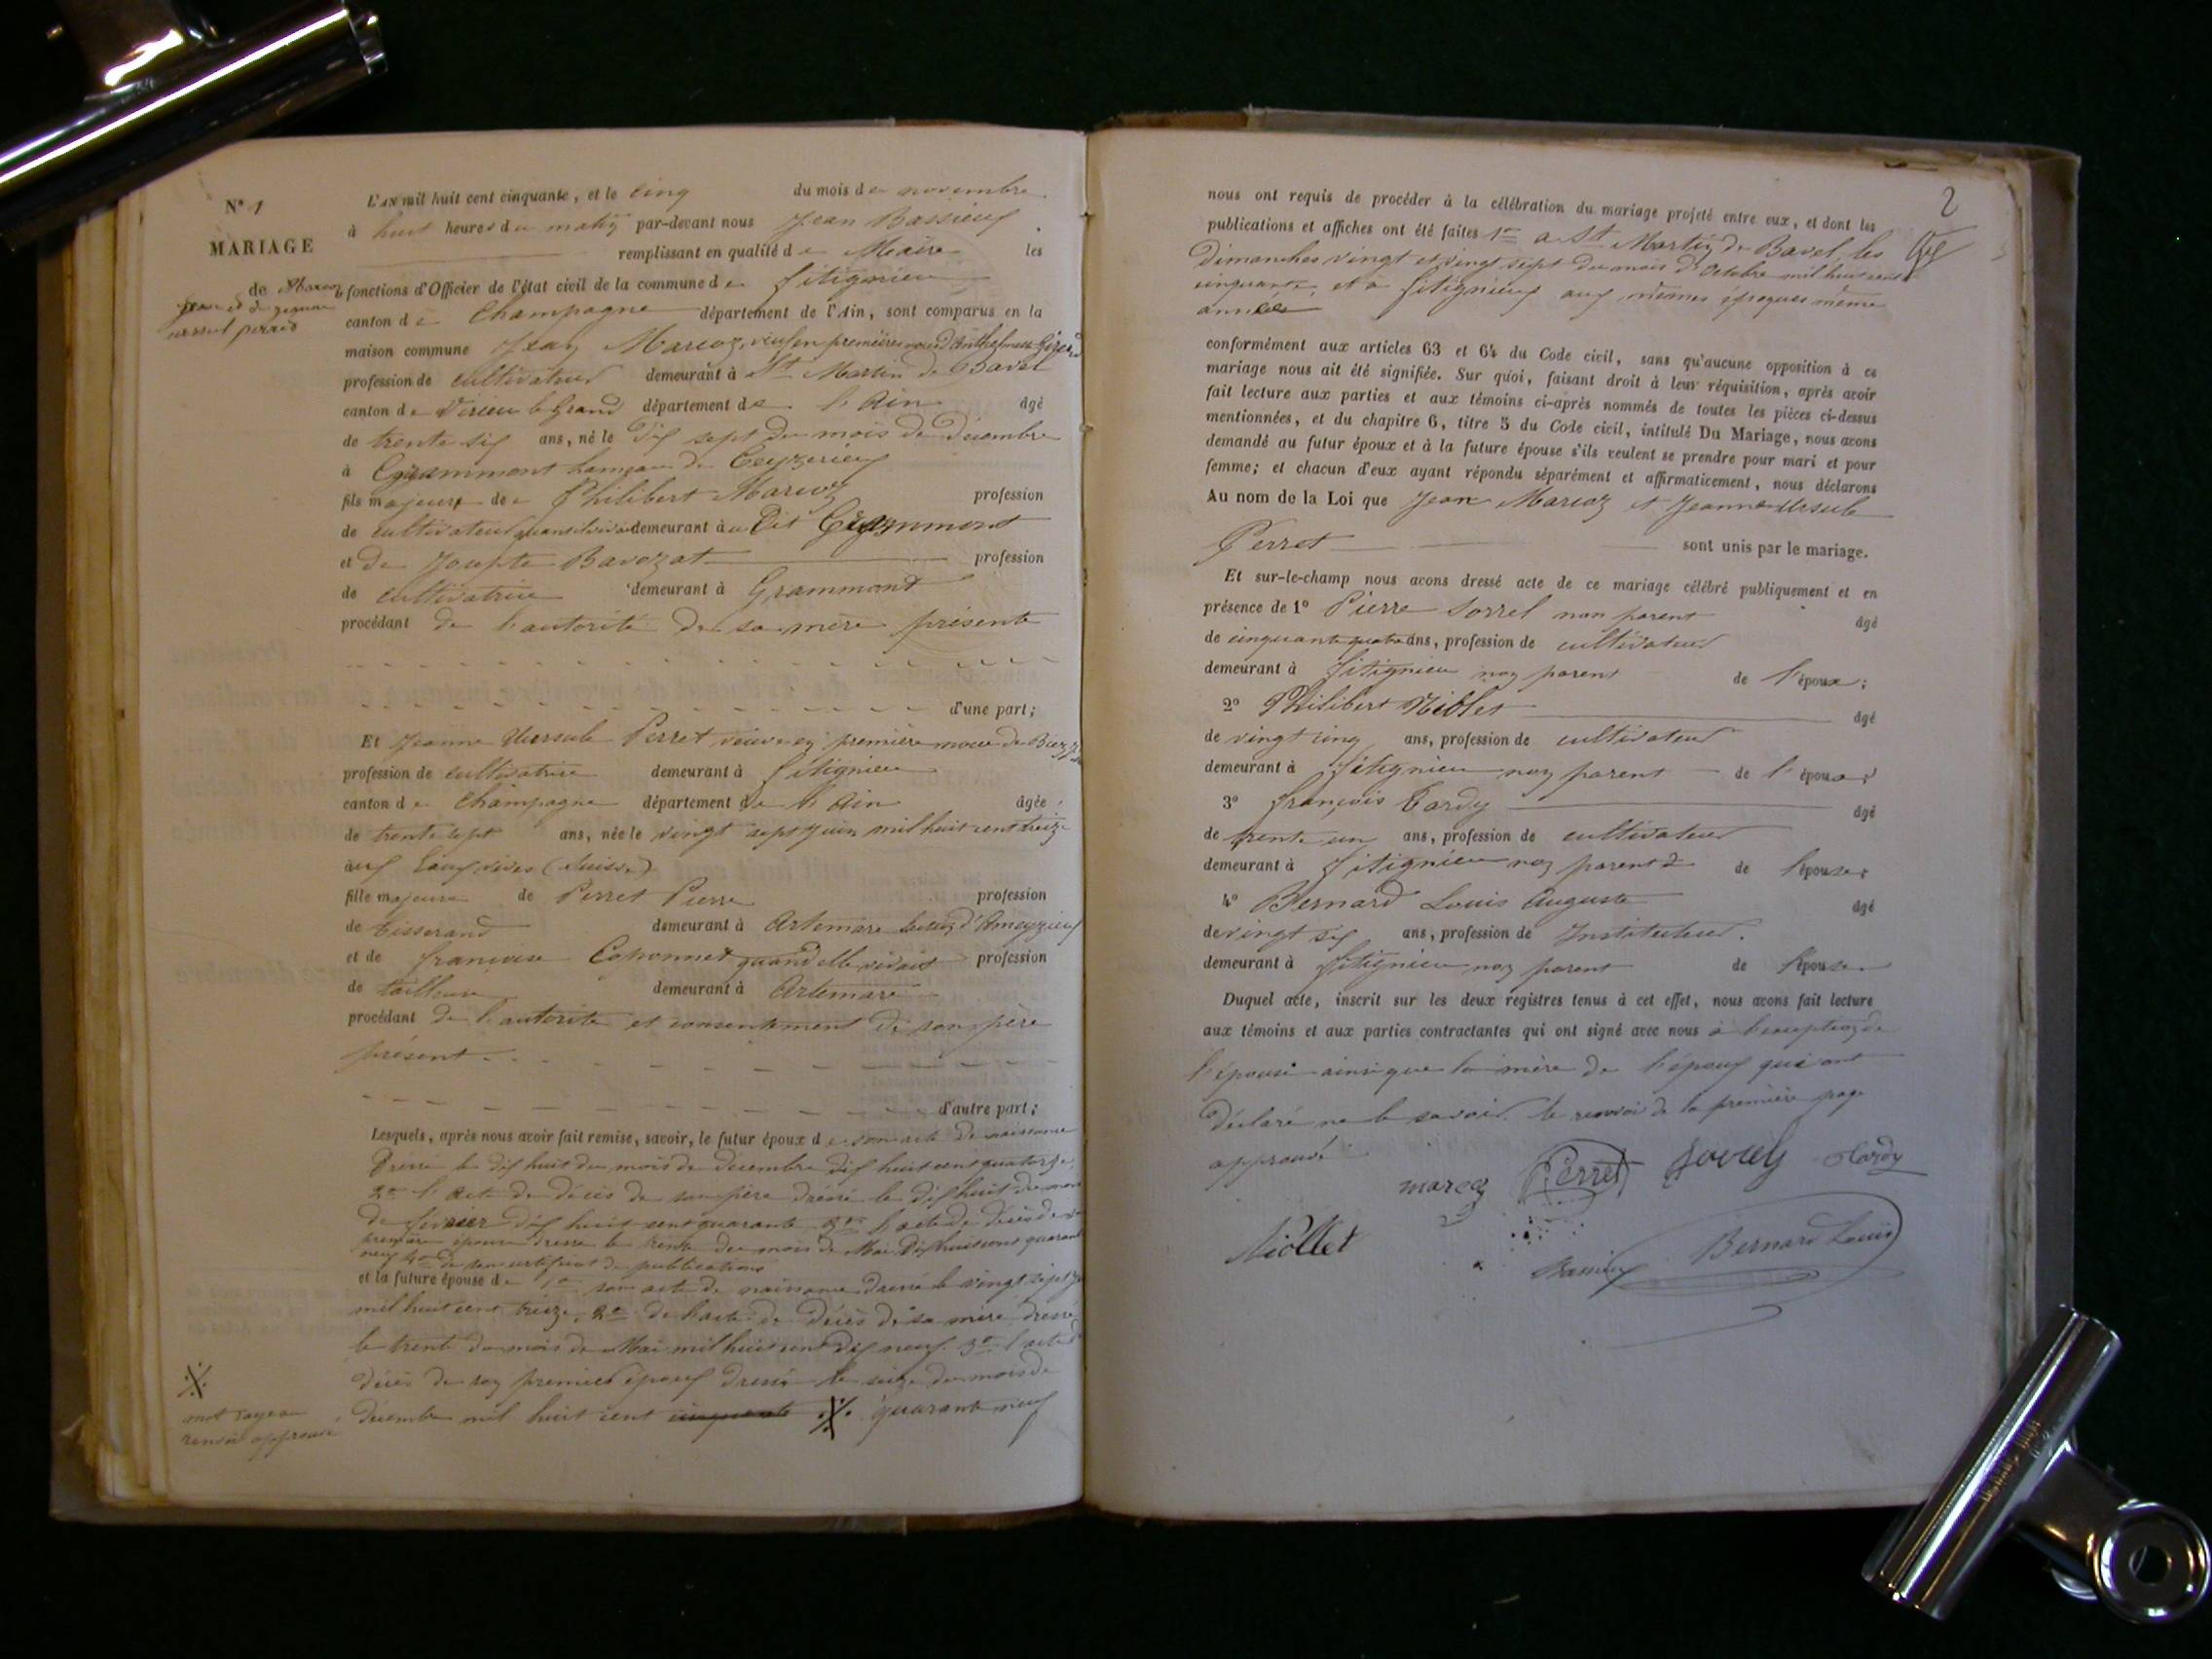 N° 1
MARIAGE
de Marcoz
Jean et de Jeanne
ursul perret
L'AN mil huit cent cinquante, et le cinq du mois de novembre
à huit heures du matin par-devant nous Jean Bassieux
remplissant en qualité de Maire les
fonctions d'Officier de l'état civil de la commune de fitignieu
canton de Champagne département de l'Ain, sont comparus en la
maison commune Jean Marcoz, veuf en premières noces d'Anthelmette
profession de cultivateur demeurant à St Martin de Bavel
canton de Virieu le Grand département de l'Ain âgé
de trente six ans, né le dix sept du mois de décembre
à Grammont hameau de Ceyzerieu
fils majeur de Philibert Marcoz profession
de cultivateur quand il vivait demeurant au dit Grammont
et de Josepte Bavozat profession
de cultivatrice demeurant à Grammont
procédant de l'autorité de sa mère présente
d'une part;
Et Jeanne Ursule Perret veuve en première noce de
profession de cultivatrice demeurant à fitignieu
canton de Champagne département de l'Ain âgée
de trente sept ans, née le vingt sept juin mil huit cent treize
aux Eaux vives (Suisse)
fille majeure de Perret Pierre profession
de tisserand demeurant à Artemare d'Ameyzieu
et de françoise quand elle vivait profession
de tailleuse demeurant à Artemare
procédant de l'autorité et consentement de son père
présent
d'autre part;
Lesquels, après nous avoir fait remise, savoir, le futur époux de son acte de naissance
dressé le dix huit du mois de décembre dix huit cent quatorze,
2° l'acte de décès de son père dressé le dix huit du mois
de février dix huit cent quarante 3° l'acte de décès de sa
première épouse dressé le trente du mois de Mai dix huit cent quarante
neuf 4° de son certificat de publications
et la future épouse de 1° son acte de naissance dressé le vingt sept
mil huit cent treize, 2° de l'acte de décès de sa mère dressé
le trente du mois de Mai mil huit cent dix neuf 3° l'acte de
décès de son premier époux dressé le seize du mois de
décembre mil huit cent cinquante quarante neuf
mot rayé au
renvoi approuvé
2
nous ont requis de procéder à la célébration du mariage projeté entre eux, et dont les
publications et affiches ont été faites 1° à St Martin de Bavel, les
dimanches vingt et vingt sept du mois d'octobre mil huit cent
cinquante, et à fitignieu aux mêmes époques même
année
conformément aux articles 63 et 64 du Code civil, sans qu'aucune opposition à ce
mariage nous ait été signifiée. Sur quoi, faisant droit à leur réquisition, après avoir
fait lecture aux parties et aux témoins ci-après nommés de toutes les pièces ci-dessus
mentionnées, et du chapitre 6, titre 5 du Code civil, intitulé Du Mariage, nous avons
demandé au futur époux et à la future épouse s'ils veulent se prendre pour mari et pour
femme; et chacun d'eux ayant répondu séparément et affirmativement, nous déclarons
Au nom de la Loi que Jean Marcoz et Jeanne Ursule
Perret sont unis par le mariage.
Et sur-le-champ nous avons dressé acte de ce mariage célébré publiquement et en
présence de 1° Pierre Sorrel non parent âgé
de cinquante quatre ans, profession de cultivateur
demeurant à fitignieu non parent de l'époux;
2° Philibert Niollet âgé
de vingt cinq ans, profession de cultivateur
demeurant à fitignieu non parent de l'époux;
3° françois Tardy âgé
de trente un ans, profession de cultivateur
demeurant à fitignieu non parent de l'épouse;
4° Bernard Louis Auguste âgé
de vingt six ans, profession de Instituteur.
demeurant à fitignieu non parent de l'épouse
Duquel acte, inscrit sur les deux registres tenus à cet effet, nous avons fait lecture
aux témoins et aux parties contractantes qui ont signé avec nous à l'exception de
l'épouse ainsi que la mère de l'époux qui ont
déclaré ne le savoir. le renvoi de la première page
approuvé
marcoz Perret Tardy
Niollet Bassieux Bernard Louis